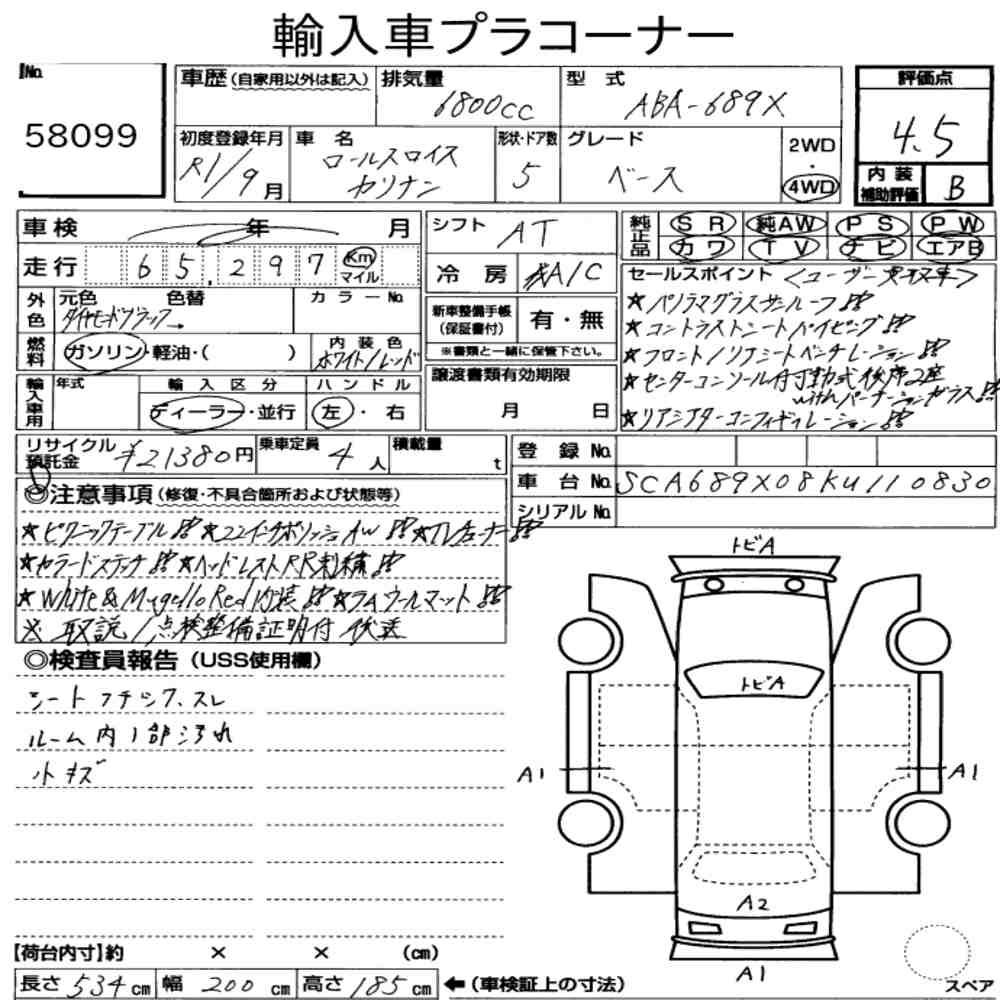 輸入車プラコーナー
No. 58099
車歴(自家用以外は記入) 排気量 6800cc 型式 ABA-689X 評価点 4.5
初度登録年月 R1/9月 車名 ロールスロイス カリナン 形状・ドア数 5 グレード ベース 2WD・4WD
内装補助評価 B
車検 年 月 シフト AT 純正品 SR 純AW PS PW
カワ TV ナビ エアB
走行 65,297 Km マイル 冷房 A/C
セールスポイント <ユーザー買取車>
外色 元色 色替 カラーNo. 新車整備手帳(保証書付) 有・無
ダイヤモンドブラック
※書類と一緒に保管下さい。
★パノラマグラスサンルーフ
★コントラストシートパイピング
燃料 ガソリン・軽油・( ) 内装色 ホワイト/レッド
★フロント/リアシートベンチレーション
譲渡書類有効期限 月 日
★センターコンソール付 動式後席2座
withパーテーションガラス
★リアシアターコンフィギュレーション
輸入車用 年式 輸入区分 ディーラー・並行 ハンドル 左・右
リサイクル預託金 ¥21380円 乗車定員 4人 積載量 t
登録No.
車台No. SCA689X08KU110830
シリアルNo.
◎注意事項(修復・不具合箇所および状態等)
★ピクニックテーブル ★22インチポリッシュAW ★TV
★カラードステッチ ★ヘッドレストRR刺繍
★White & Mugello Red内装 ★ラムウールマット
※取説/点検整備証明付 後送
◎検査員報告(USS使用欄)
シートフチシワ、スレ
ルーム内1部汚れ
小キズ
トビA
トビA
A1 A1
A2
A1
スペア
【荷台内寸】約 × × (cm)
長さ 534cm 幅 200cm 高さ 185cm ←(車検証上の寸法)